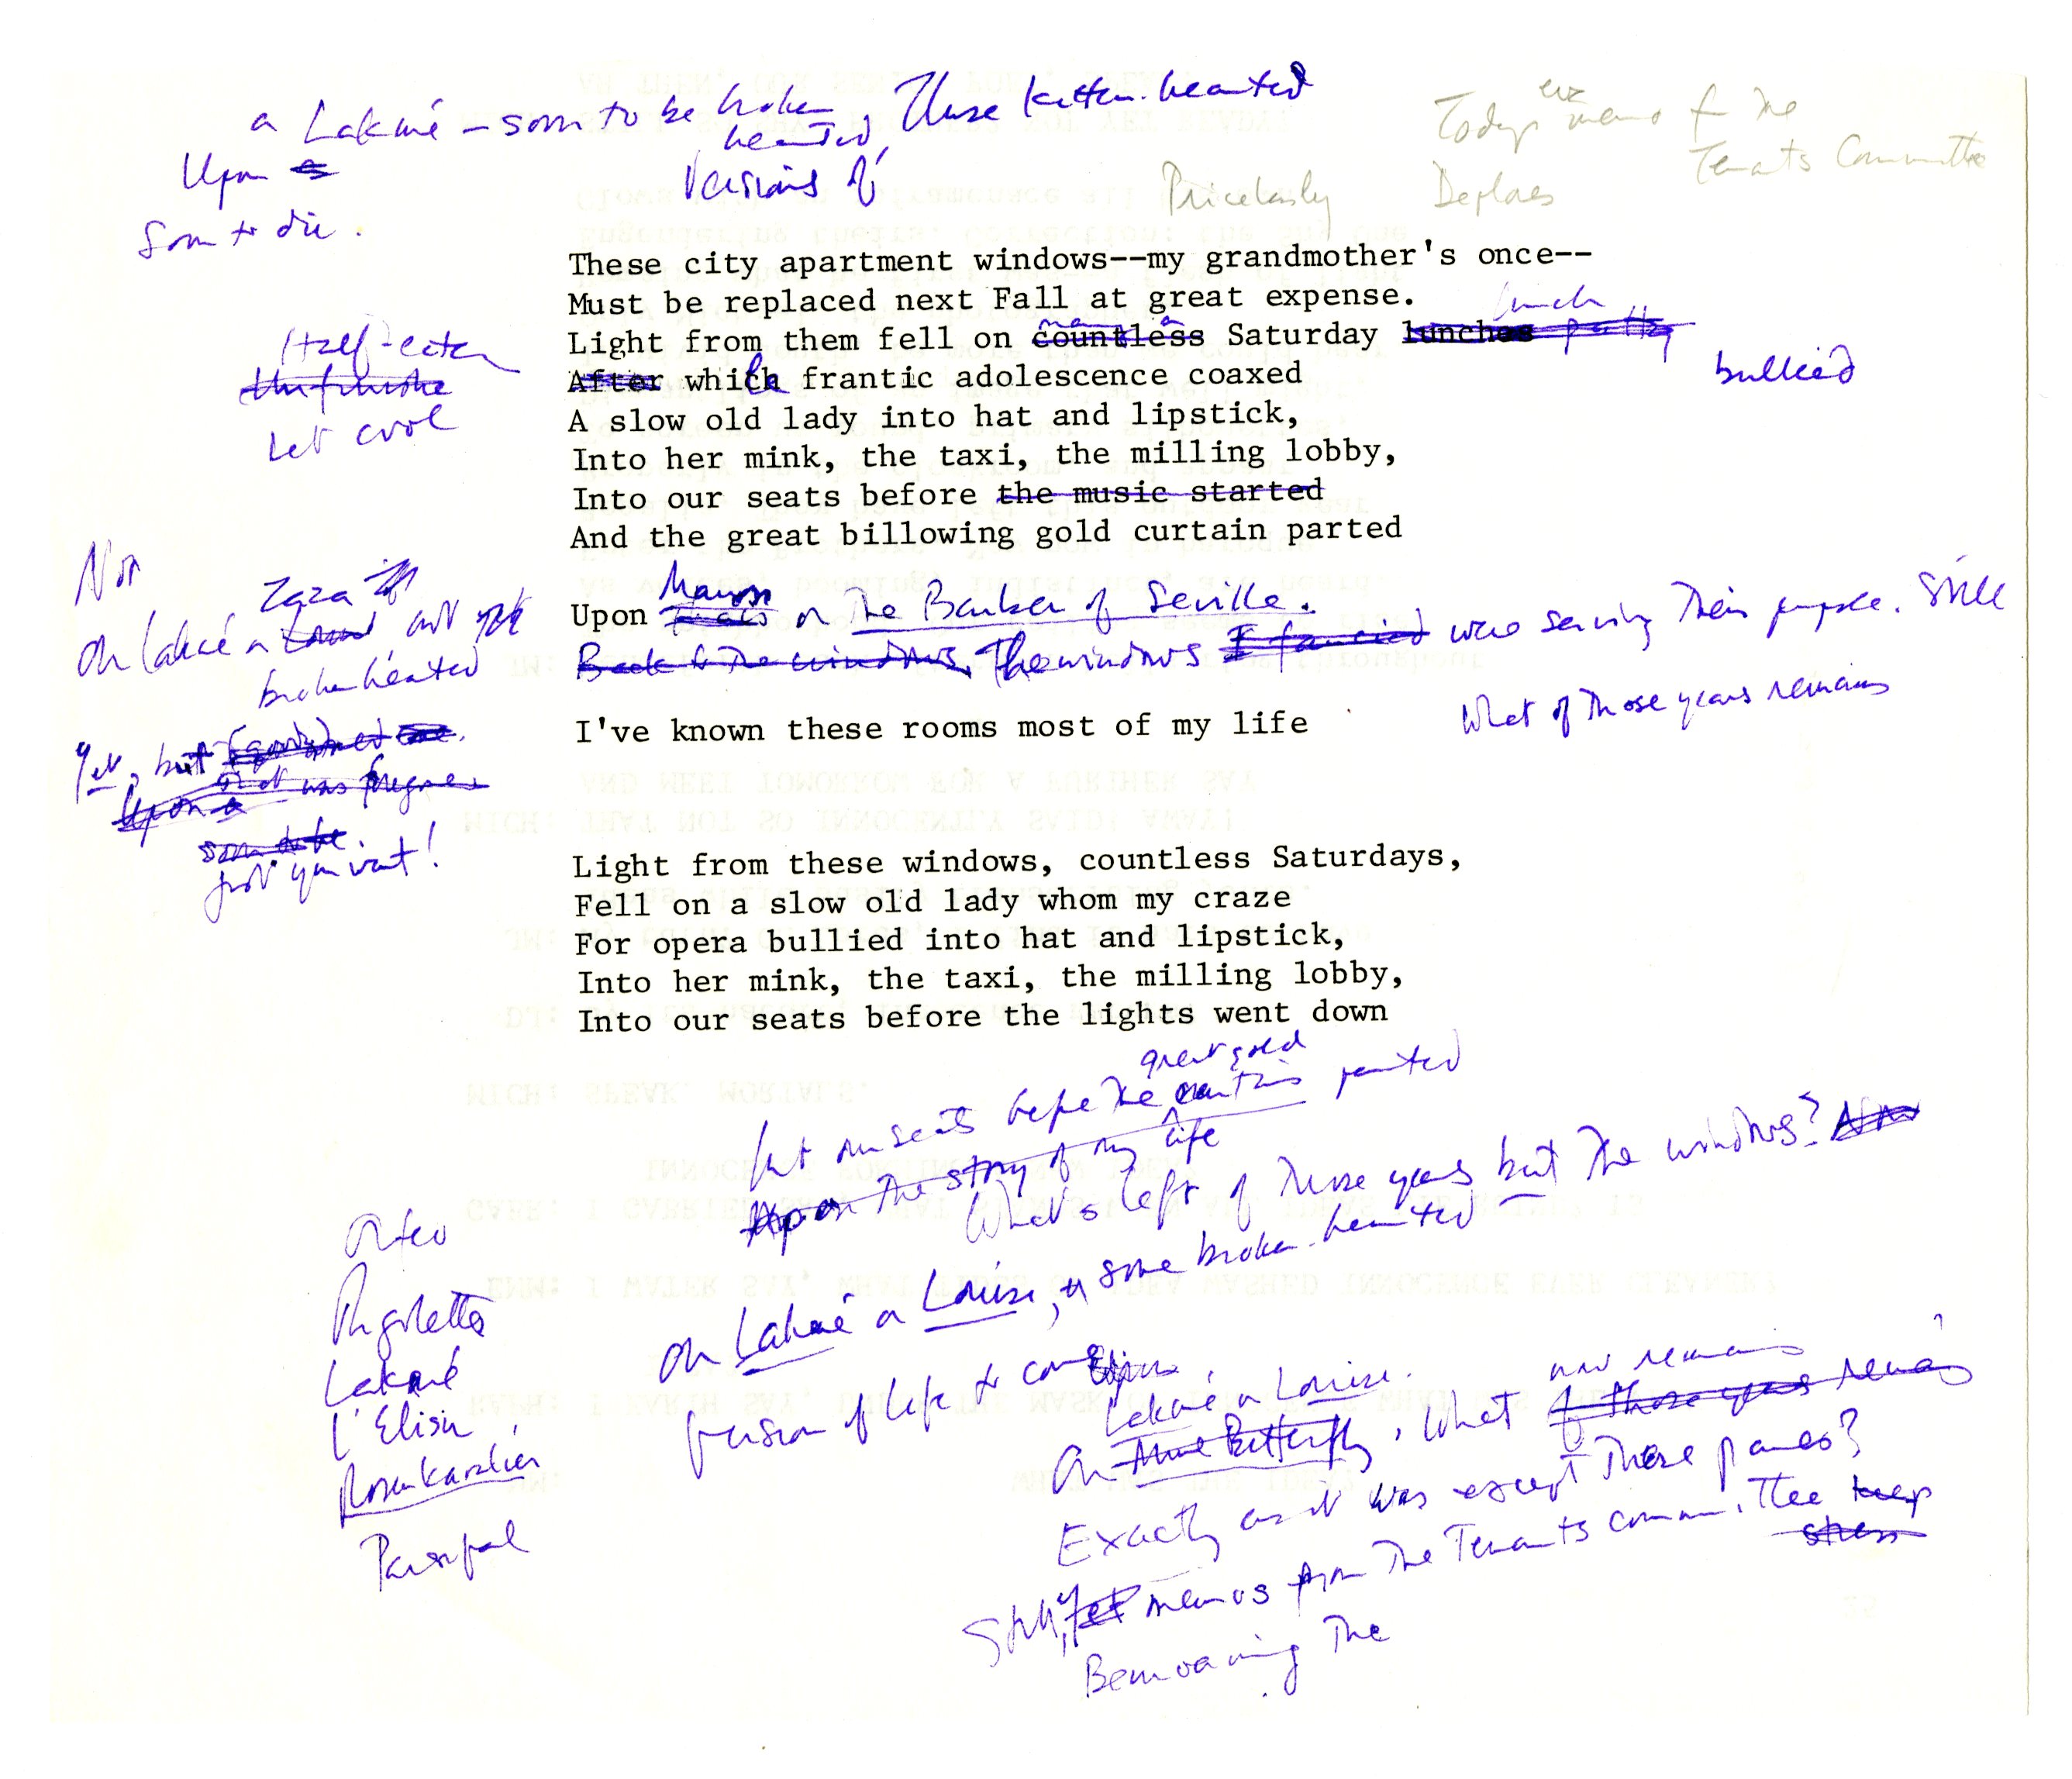 a Lakmé – soon to be broken hearted, These kitten-hearted
Upon a
Versions of
Soon to die.
Today's memo f the
Tenants Committee
Pricelessly Deplores
These city apartment windows--my grandmother's once--
Must be replaced next Fall at great expense.
lunch
many a
Light from them fell on countless Saturday lunches party
bullied
Half-eaten
Unfinished
Let cool
After which frantic adolescence coaxed
A slow old lady into hat and lipstick,
Into her mink, the taxi, the milling lobby,
Into our seats before the music started
And the great billowing gold curtain parted
Not
Zaza
On Lakmé or Louise not yet
broken hearted
Manon
Upon or The Barber of Seville.
Back to the windows. The windows I fancied were serving their purpose. Still
What of those years remains
Yes, but
Upon a
soon to be
just you wait!
I've known these rooms most of my life
Light from these windows, countless Saturdays,
Fell on a slow old lady whom my craze
For opera bullied into hat and lipstick,
Into her mink, the taxi, the milling lobby,
Into our seats before the lights went down
great gold
our seats before the curtain parted
Upon the story of my life
What's left of those years but the windows?
On Lakmé or Louise, or some broken-hearted
Version of life to come
Orfeo
Rigoletto
Lakmé
L'Elisir
Rosenkavalier
Parsifal
Lakmé or Louise.
now remains
On Butterfly, What of those years remains
Exactly as it was except these panes?
Still, yet memos from the Tenants Committee keep
stress
Bemoaning the